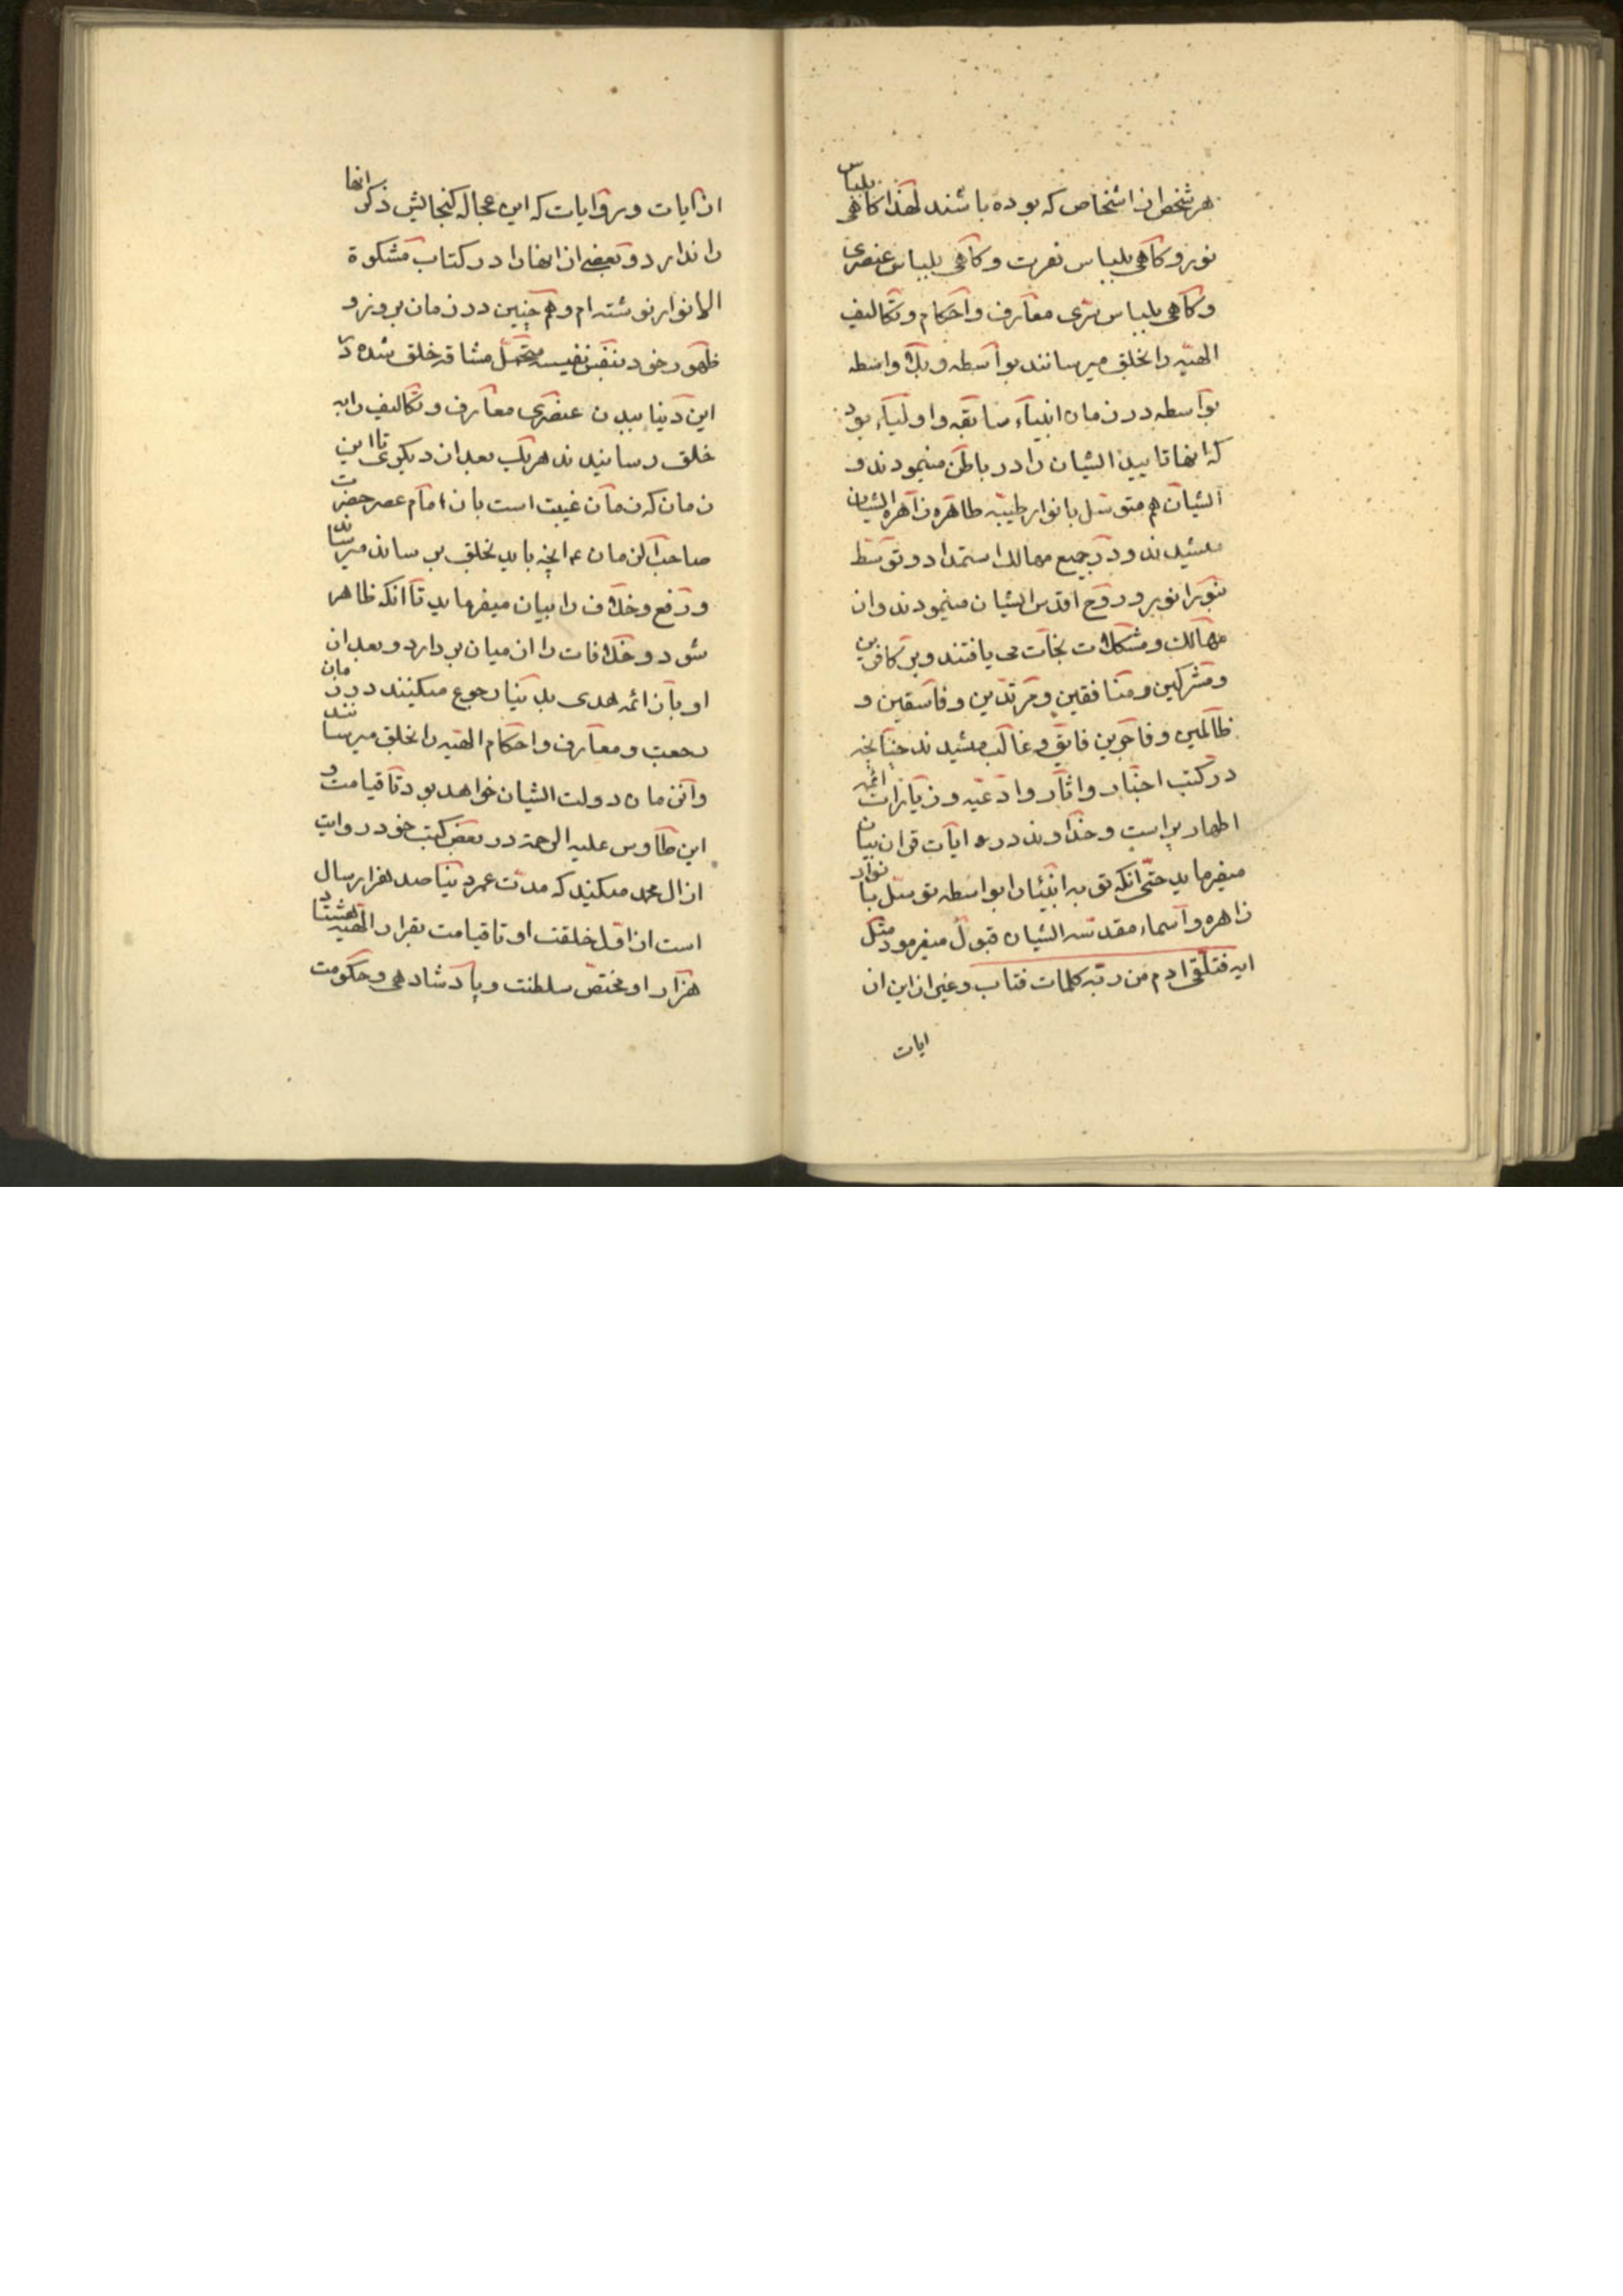 هر شخص از اشخاص که بوده باشند لهذا کاهی بلباس
نور و کاهی بلباس نعرت و کاهی بلباس عنصری
و کاهی بلباس بشری معارف و احکام و تکالیف
الهیه را بخلق میرسانند بواسطه و بلا واسطه
بواسطه در زمان انبیاء سابقه و اولیاء بود
که انها تایید ایشان را در باطن مینمودند و
ایشان هم متوسل بانوار طیبه طاهره زاهره ایشان
میشدند و در جمیع مهالک استمداد و توسط
بنور انور و روح اقدس ایشان مینمودند و از
مهالک و مشکلات نجات می یافتند و بر کافرین
و مشرکین و منافقین و مرتدین و فاسقین و
ظالمین و فاجرین فایق و غالب میشدند چنانچه
در کتب اخبار و اثار و ادعیه و زیارات ائمه
اطهار پر است و خداوند در ایات قران بیان
میفرماید حتی انکه توبه انبیا را بواسطه توسل بانوار
زاهره و اسماء مقدسه ایشان قبول میفرمود مثل
ایه فتلقی ادم من ربه کلمات فتاب و غیر از این از
ایات
از ایات و روایات که این عجاله کنجایش ذکر انها
را ندارد و بعضی از انها را در کتاب مشکوة
الانوار نوشته ام و هم چنین در زمان بروز و
ظهور خود بنفس نفیسه متحمل مشاقه خلق شده در
این دنیا ببدن عنصری معارف و تکالیف را به
خلق رسانیدند هر یک بعد از دیکری تا این
زمان که زمان غیبت است باز امام عصر حضرت
صاحب الزمان ع انچه باید بخلق برساند میرساند
و رفع و خلاف را بیان میفرماید تا انکه ظاهر
شود و خلافات را از میان بردارد و بعد از
او باز ائمه هدی بدنیا رجوع میکنند در زمان
رجعت و معارف و احکام الهیه را بخلق میرسانند
و آنزمان دولت ایشان خواهد بود تا قیامت و
ابن طاوس علیه الرحمة در بعض کتب خود روایت
از ال محمد میکند که مدت عمر دنیا صد هزار سال
است از اول خلقت او تا قیامت بقرار الهیه هشتاد
هزار او مختص سلطنت و پادشاهی و حکومت